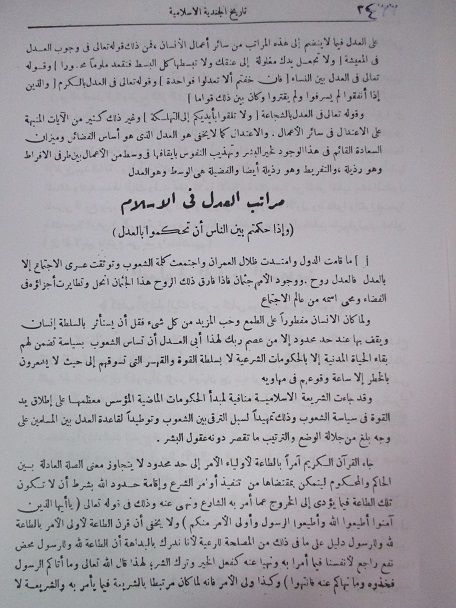 تاريخ الجندية الاسلامية
٢٤
على العدل فيما لا ينضم إلى هذه المراتب من سائر أعمال الأنسان ، فمن ذلك قوله تعالى فى وجوب العدل
فى المعيشة [ ولا تجعل يدك مغلولة إلى عنقك ولا تبسطها كل البسط فتقعد ملوماً محسورا ] وقوله
تعالى فى العدل بين النساء [ فان خفتم ألا تعدلوا فواحدة ] وقوله تعالى فى العدل بالكرم [ والذين
إذا أنفقوا لم يسرفوا ولم يقتروا وكان بين ذلك قواما ]
وقوله تعالى فى العدل بالشجاعة [ ولا تلقوا بأيديكم إلى التهلكة ] وغير ذلك كثير من الآيات المنبهة
على الاعتدال فى سائر الأعمال . والاعتدال كما لا يخفى هو العدل الذى هو أساس الفضائل وميزان
السعادة القائم فى هذا الوجود لخير البشر وتهذيب النفوس بايقافها فى وسط من الأعمال بين طرفى الافراط
وهو رذيلة ، والتفريط وهو رذيلة أيضا والفضيلة هى الوسط وهو العدل
مراتب العدل فى الاسلام
(وإذا حكمتم بين الناس أن تحكموا بالعدل)
ما قامت الدول وامتدت ظلال العمران واجتمعت كلمة الشعوب وتوثقت عرى الاجتماع إلا
بالعدل فالعدل روح . ووجود الأمم جثمان فاذا فارق ذلك الروح هذا الجثمان انحل وتطايرت أجزاؤه فى
الفضاء ومحى اسمه من عالم الاجتماع
ولما كان الانسان مفطوراً على الطمع وحب المزيد من كل شىء فقل أن يستأثر بالسلطة إنسان
ويقف بها عند حد محدود إلا من عصم ربك لهذا أبى العدل أن تساس الشعوب بسياسة تضمن لهم
بقاء الحياة المدنية إلا بالحكومات الشرعية لا بسلطة القوة والقهر التى تسوقهم إلى حيث لا يشعرون
بالخطر إلا ساعة وقوعهم فى مهاويه
وقد جاءت الشريعة الاسلامية منافية لمبدأ الحكومات الماضية المؤسس معظمها على إطلاق يد
القوة فى سياسة الشعوب وذلك تمهيداً لسبل الترقى بين الشعوب وتوطيداً لقاعدة العدل بين المسلمين على
وجه بلغ من جلالة الوضع والترتيب ما تقصر دونه عقول البشر .
جاء القرآن الكريم آمراً بالطاعة لأولياء الأمر إلى حد محدود لا يتجاوز معنى الصلة العادلة بين
الحاكم والمحكوم ليتمكن بمقتضاها من تنفيذ أوامر الشرع وإقامة حدود الله بشرط أن لا تكون
تلك الطاعة فيما يؤدى إلى الخروج عما أمر به الشارع ونهى عنه وذلك فى قوله تعالى ( يا أيها الذين
آمنوا أطيعوا الله وأطيعوا الرسول وأولى الأمر منكم ) ولا يخفى أن قرن الطاعة لأولى الأمر بالطاعة
لله وللرسول دليل على ما فى ذلك من المصلحة للرعية لأنا ندرك بالبداهة أن الطاعة لله وللرسول محض
نفع راجع لأنفسنا فيما أمرنا به ونهينا عنه كفعل الخير وترك الشر، لهذا قال الله تعالى وما أتاكم الرسول
فخذوه وما نهاكم عنه فانتهوا ) وكذا ولى الأمر فانه لما كان مرتبطا بالشريعة فيما يأمر به والشريعة لا